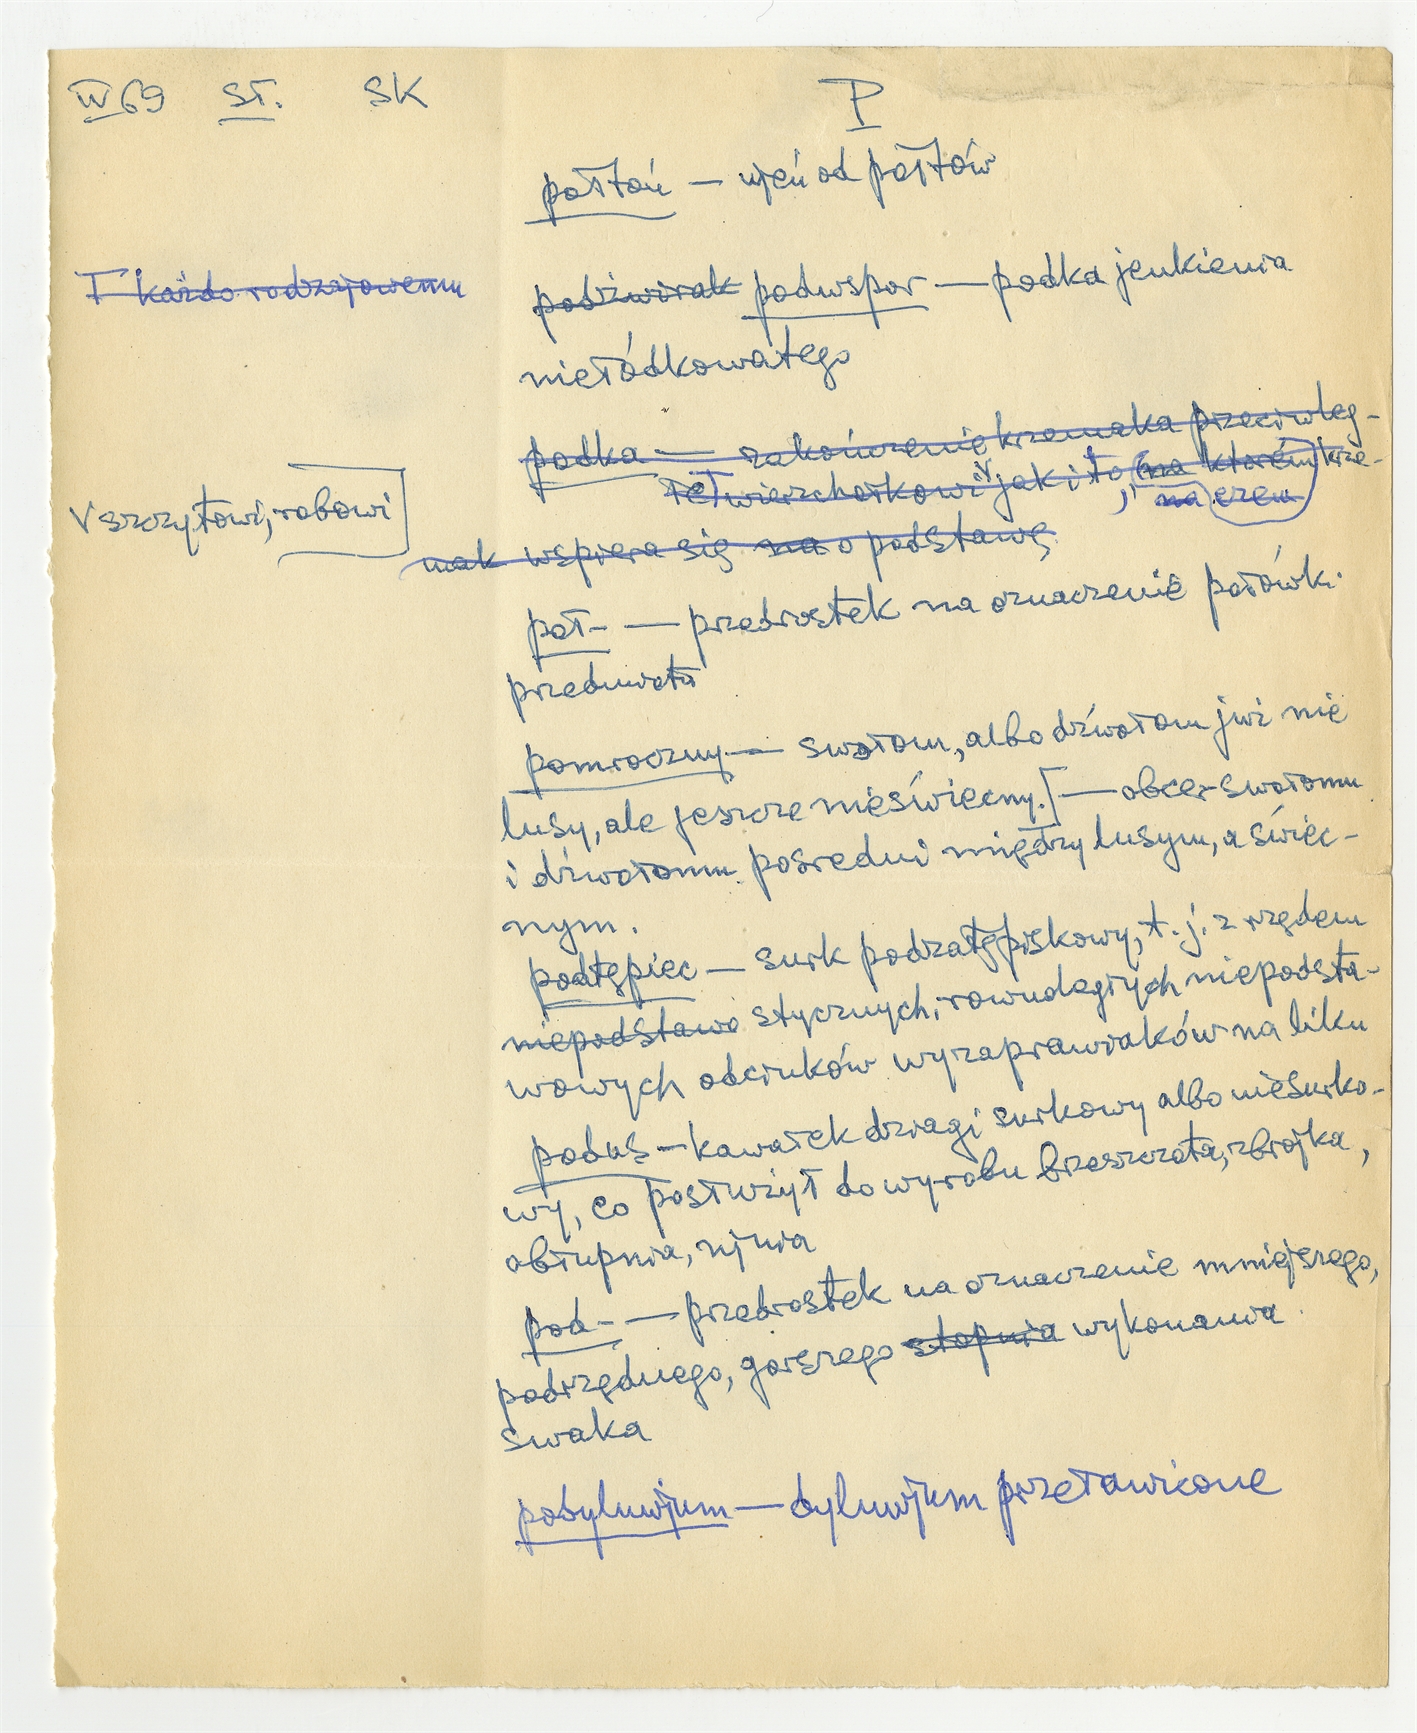 IV 69 sł. SK
P
połtoń — ujeń od połtów
T każdo rodzajowemu
podżwirak podwspor — podka jenkienia
niełódkowatego
podka — zakończenie krzemaka przeciwleg-
łe wierzchołkowi V jak i to, na którem krze-
na czem
V szczytowi, robowi
mak wspiera się na o podstawę
poł- — przedrostek na oznaczenie połówki
przedmiota
pomroczny — swołom, albo dźwołom już nie
lusy, ale jeszcze nieświecny. [— obcer swołomu
i dźwołomu pośredni między lusym, a świec-
nym.
podtępiec — surk podzatępiskowy, t.j. z rzędem
niepodstawo stycznych, rownoległych niepodsta-
wowych odcinków wyzaprawiaków na liku
poduś — kawałek dziagi surkowy albo niesurko-
wy, co posłużył do wyrobu brzeszczota, zbrojka,
obłupnia, ujnia
pod- — przedrostek na oznaczenie mniejszego,
podrzędnego, gorszego stopnia wykonania
swaka
podyluwjum — dyluwjum przeławicone